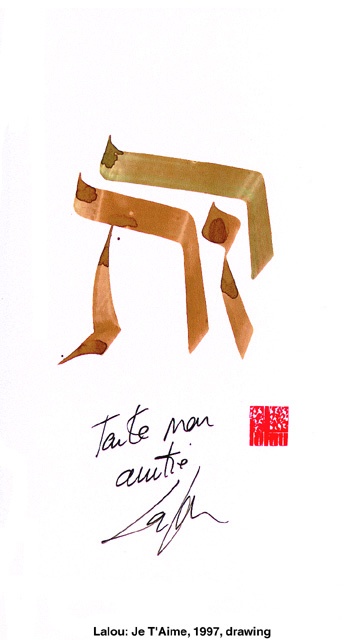 Toute mon
amitié
Lalou
Lalou: Je T'Aime, 1997, drawing